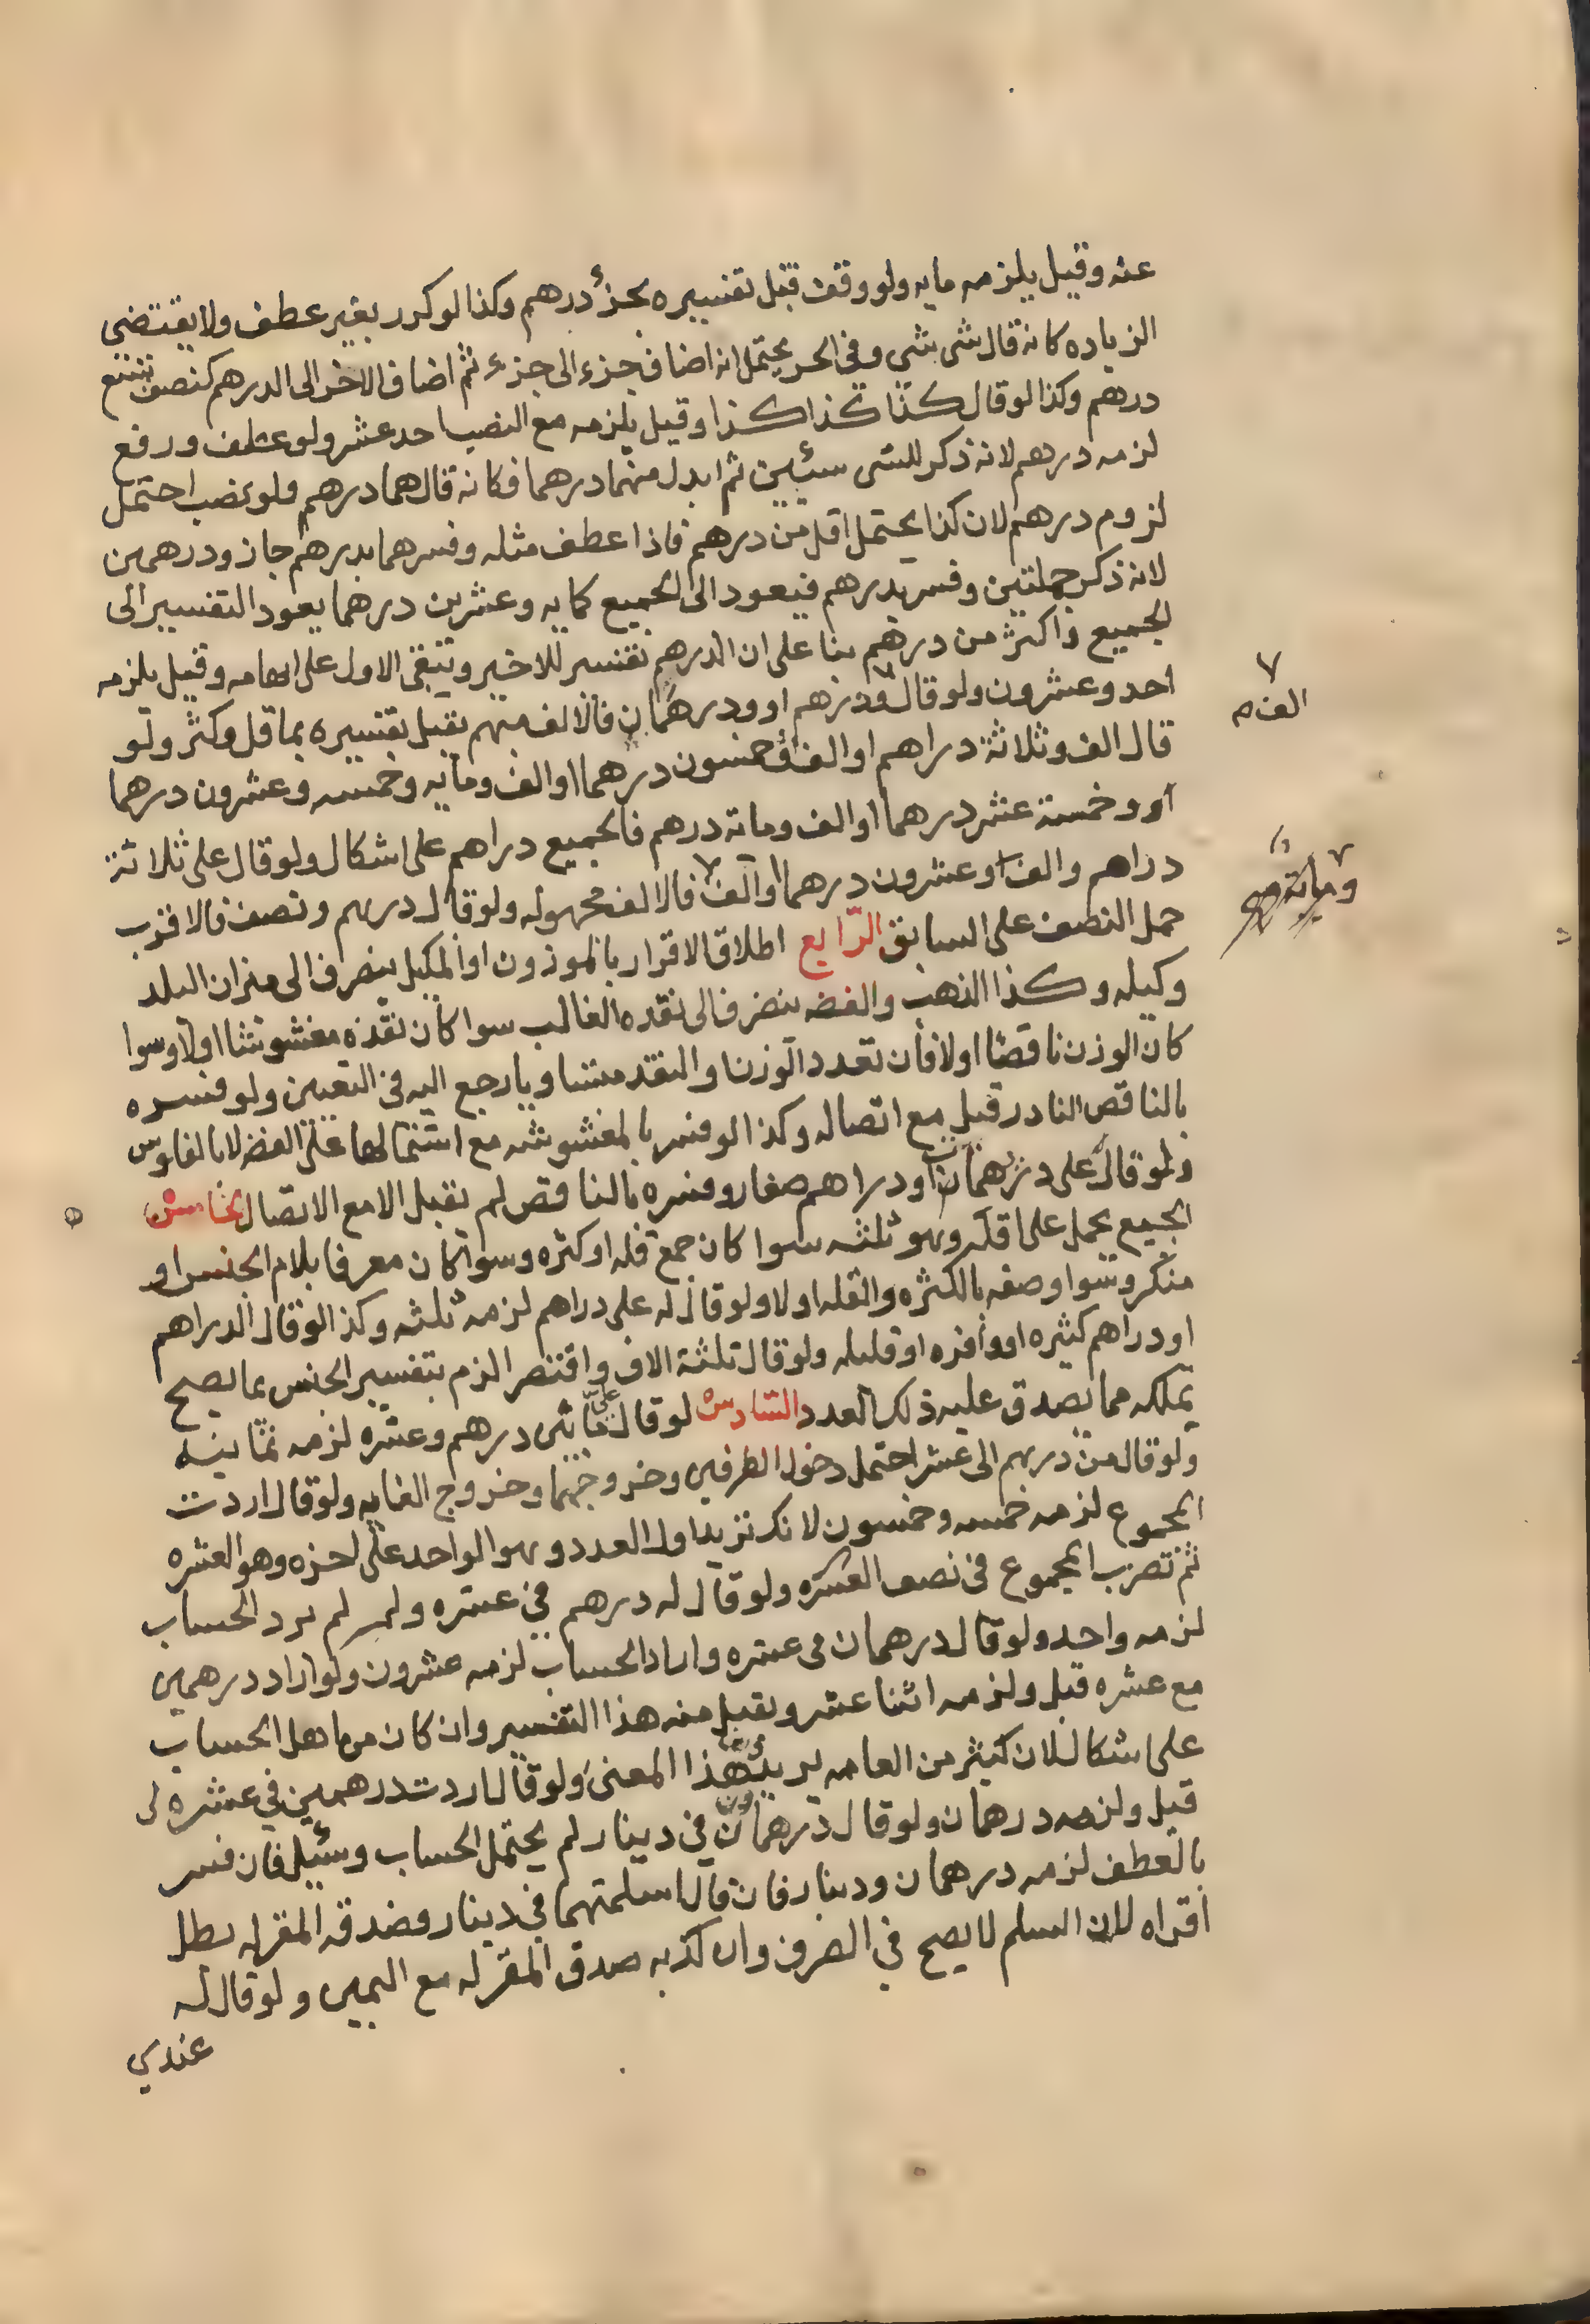 عنه وقيل يلزمه مايه ولو وقف قبل تفسيره بجزء درهم وكذا لو كرر بغير عطف ولا يقتضي
الزياده كانه قال شي شي وفي الجر يحتمل انه اضاف جزء الى جزء ثم اضاف الاخر الى الدرهم كنصف تسع
درهم وكذا لو قال كذا كذا كذا وقيل يلزمه مع النصب احد عشر ولو عطف ورفع
لزمه درهم لانه ذكر للشى سيئين ثم ابدل منهما درهما فكانه قال هما درهم ولو نصب احتمل
لزوم درهم لان كذا يحتمل اقل من درهم فاذا عطف مثله وفسرهما بدرهم جاز ودرهمين
لانه ذكر جملتين وفسر بدرهم فيعود الى الجميع كمايه وعشرين درهما يعود التفسير الى
الجميع واكثر من درهم بنا على ان الدرهم تفسير للاخير ويبقى الاول على ابهامه وقيل يلزمه
احد وعشرون ولو قال ودرهم او ودرهمان فالالف مبهم يقبل تفسيره بما قل وكثر ولو
الف صح
قال الف وثلاثة دراهم او الف وخمسون درهما او الف ومايه وخمسه وعشرون درهما
او وخمسة عشر درهما او الف وماية درهم فالجميع دراهم على اشكال ولو قال على ثلاثة
وماية صح
دراهم والف او عشرون درهما او الف فالالف مجهوله ولو قال درهم ونصف فالاقرب
حمل النصف على السابق الرابع اطلاق الاقرار بالموزون او المكيل ينصرف الى ميزان البلد
وكيله وكذا الذهب والفضه ينصرف الى نقده الغالب سوا كان نقده مغشوشا او لا وسوا
كان الوزن ناقصا او لا فان تعدد الوزن او النقد متساويا رجع اليه في التعيين ولو فسره
بالناقص النادر قبل مع اتصاله وكذا لو فسر بالمغشوشه مع اشتمالها على الفضه لا بالفلوس
ولو قال على دريهمات او دراهم صغار وفسره بالناقص لم يقبل الا مع الاتصال الخامس
الجمع يحمل على اقله وهو ثلثه سوا كان جمع قله او كثره وسوا كان معرفا بلام الجنس او
منكر وسوا وصفه بالكثره والقله او لا ولو قال له على دراهم لزمه ثلثه وكذا لو قال الدراهم
او دراهم كثيره او وافره او قليله ولو قال ثلثة الاف واقتصر الزم بتفسير الجنس بما يصح
تملكه مما يصدق عليه ذلك العدد السادس لو قال على ما بين درهم وعشره لزمه ثمانيه
ولو قال من درهم الى عشر احتمل دخول الطرفين وخروجهما وخروج الغايه ولو قال اردت
المجموع لزمه خمسه وخمسون لانك تزيد اول العدد وهو الواحد على اخره وهو العشره
ثم تضرب المجموع في نصف العشره ولو قال له درهم في عشره ولم يرد الحساب
لزمه واحد ولو قال درهمان في عشره واراد الحساب لزمه عشرون ولو اراد درهمين
مع عشره قبل ولزمه اثنا عشر ويقبل منه هذا التفسير وان كان من اهل الحساب
على اشكال لان كثير من العامه يريد هذا المعنى ولو قال اردت درهمين في عشره لى
قبل ولزمه درهمان ولو قال درهمان في دينار لم يحتمل الحساب وسئل فان فسر
بالعطف لزمه درهمان ودينار فان قال اسلمتهما في دينار وصدقه المقر له بطل
اقراره لان السلم لا يصح في الصرف وان كذبه صدق المقر له مع اليمين ولو قال له
عندي